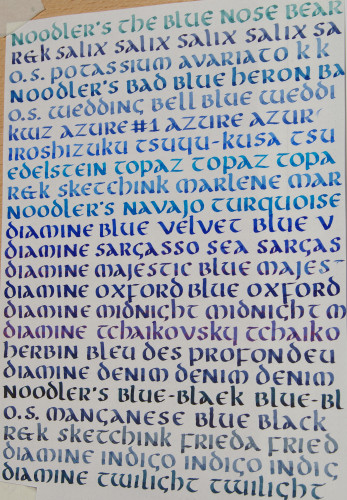 NOODLER'S THE BLUE NOSE BEAR
R&K SALIX SALIX SALIX SALIX SA
O.S. POTASSIUM AVARIATO K K
NOODLER'S BAD BLUE HERON BA
O.S. WEDDING BELL BLUE WEDDI
KWZ AZURE #1 AZURE AZUR
IROSHIZUKU TSUYU-KUSA TSU
EDELSTEIN TOPAZ TOPAZ TOPA
R&K SKETCHINK MARLENE MAR
NOODLER'S NAVAJO TURQUOISE
DIAMINE BLUE VELVET BLUE V
DIAMINE SARGASSO SEA SARGAS
DIAMINE MAJESTIC BLUE MAJEST
DIAMINE OXFORD BLUE OXFORD
DIAMINE MIDNIGHT MIDNIGHT M
DIAMINE TCHAIKOVSKY TCHAIKO
HERBIN BLEU DES PROFONDEU
DIAMINE DENIM DENIM DENIM
NOODLER'S BLUE-BLAEK BLUE-BL
O.S. MANGANESE BLUE BLACK
R&K SKETCHINK FRIEDA FRIED
DIAMINE INDIGO INDIGO INDIG
DIAMINE TWILIGHT TWILIGHT